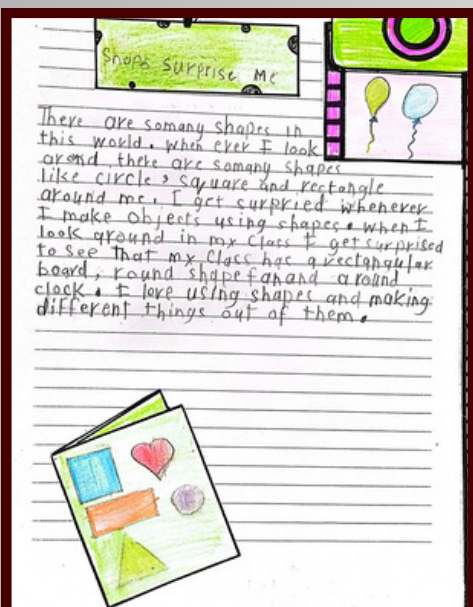 Shape surprise Me
There are somany shapes in
this world. when ever I look
around, there are somany shapes
like circle, square and rectangle
around me. I get surpried whenever
I make objects using shapes. when I
look around in my class I get surprised
to see that my class has a rectangular
board, round shape fan and a round
clock. I love using shapes and making
different things out of them.